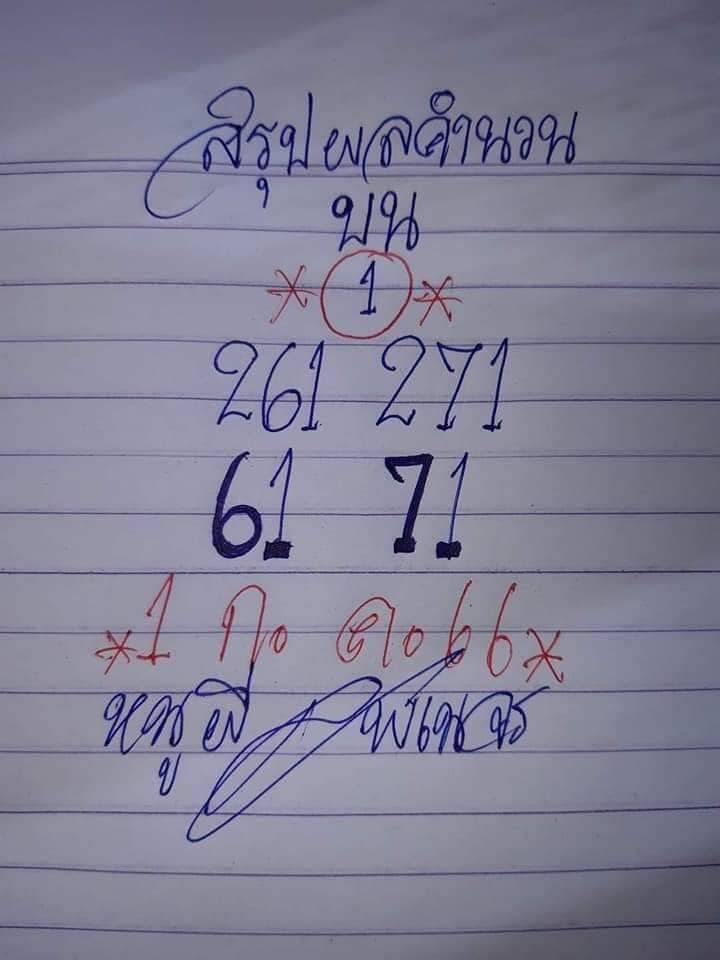 สิรุปผลคำนวน
บน
* 1 *
261 271
61 71
*1 กo คo66*
หนูผี พเนจร